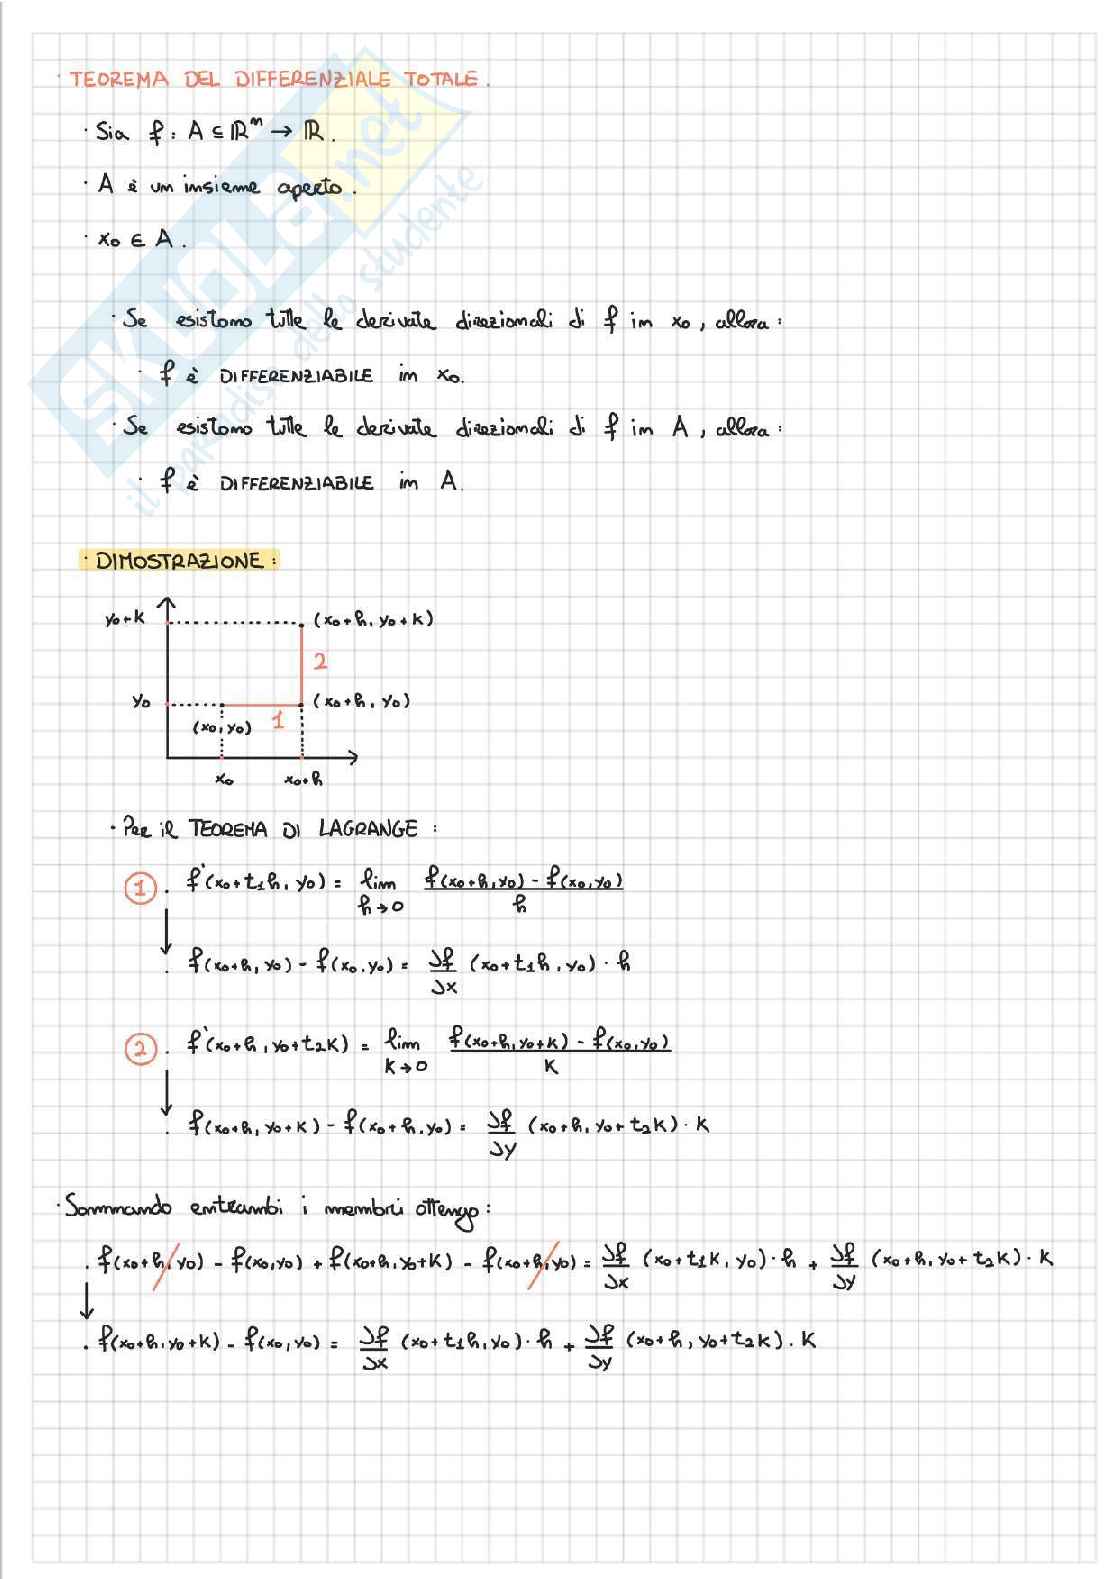 · TEOREMA DEL DIFFERENZIALE TOTALE.
· Sia f: A ⊆ ℝⁿ → ℝ.
· A è un insieme aperto.
· x₀ ∈ A.
· Se esistono tutte le derivate direzionali di f in x₀, allora:
· f è DIFFERENZIABILE in x₀.
· Se esistono tutte le derivate direzionali di f in A, allora:
· f è DIFFERENZIABILE in A.
SKUOLa.net
il paradiso dello studente
· DIMOSTRAZIONE:
y₀+k (x₀+h, y₀+k)
2
y₀ (x₀+h, y₀)
(x₀, y₀) 1
x₀ x₀+h
· Per il TEOREMA DI LAGRANGE:
① . f'(x₀+t₁h, y₀) = lim h→0 (f(x₀+h, y₀) - f(x₀, y₀)) / h
↓ . f(x₀+h, y₀) - f(x₀, y₀) = ∂f/∂x (x₀+t₁h, y₀) · h
② . f'(x₀+h, y₀+t₂k) = lim k→0 (f(x₀+h, y₀+k) - f(x₀, y₀)) / k
↓ . f(x₀+h, y₀+k) - f(x₀+h, y₀) = ∂f/∂y (x₀+h, y₀+t₂k) · k
· Sommando entrambi i membri ottengo:
. f(x₀+h, y₀) - f(x₀, y₀) + f(x₀+h, y₀+k) - f(x₀+h, y₀) = ∂f/∂x (x₀+t₁k, y₀) · h + ∂f/∂y (x₀+h, y₀+t₂k) · k
↓ . f(x₀+h, y₀+k) - f(x₀, y₀) = ∂f/∂x (x₀+t₁h, y₀) · h + ∂f/∂y (x₀+h, y₀+t₂k) · k